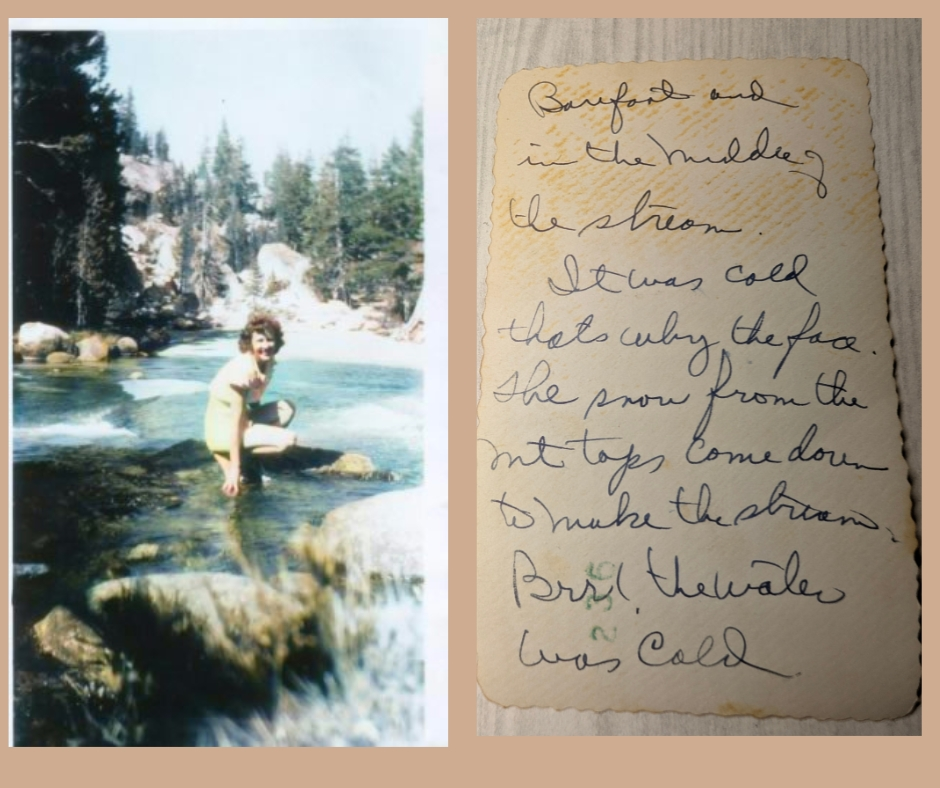 Barefoot and
in the middle of
the stream.
It was cold
thats why the face.
The snow from the
mt tops come down
to make the stream.
Brrr! the water
was cold.
236